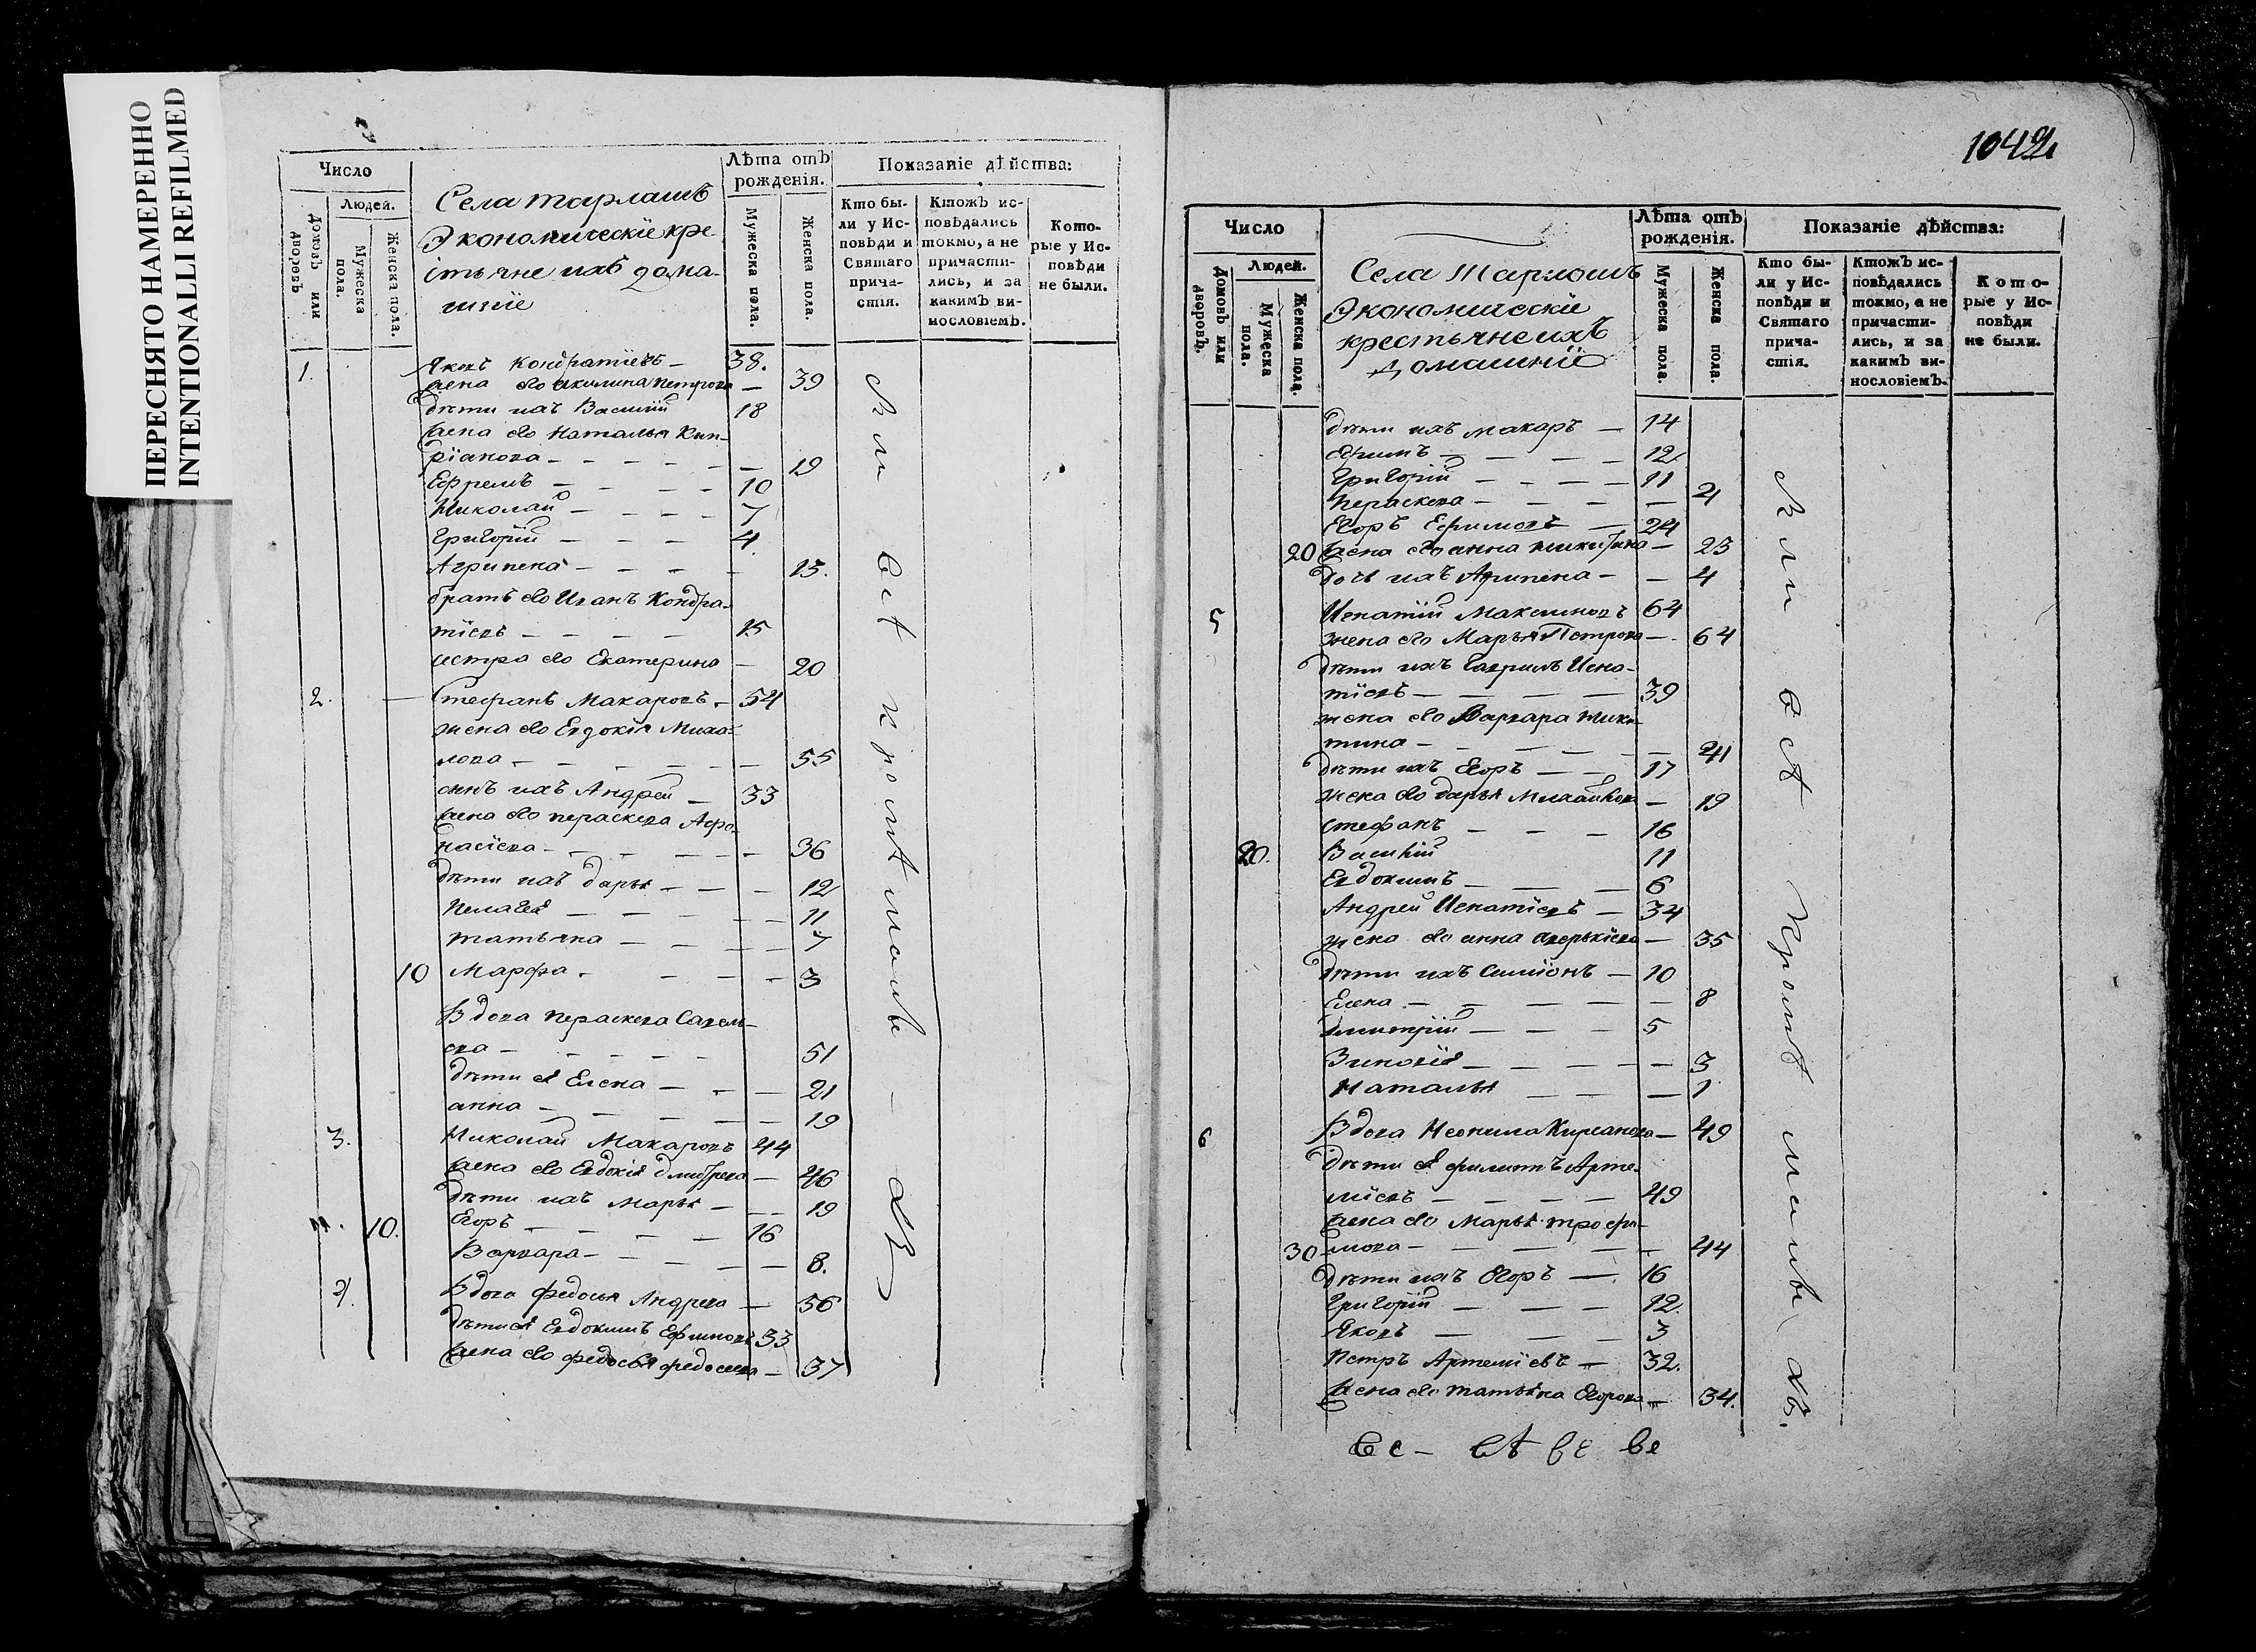 ПЕРЕСНЯТО НАМЕРЕННО
INTENTIONALLI REFILMED
Число
Людей.
Домовъ или дворовъ
Мужеска пола.
Женска пола.
Села Тарлашъ
Экономическіе кре-
стьяне ихъ дома-
шніе
Лѣта отъ рожденія.
Мужеска пола.
Женска пола.
Показаніе дѣйства:
Кто бы-
ли у Ис-
повѣди и
Святаго
прича-
стія.
Ктожъ ис-
повѣдались
токмо, а не
причасти-
лись, и за
какимъ ви-
нословіемъ.
Кото-
рые у Ис-
повѣди
не были.
1. Яковъ Кондратіевъ — 38.
жена его Акилина Петрова — 39
дѣти ихъ Василій 18
жена его Наталья Кип-
ріанова — 19
Ефремъ — 10
Николай — 7
Григорій — 4.
Агрипена — 13.
братъ его Иванъ Кондра-
тіевъ — 15
сестра его Екатерина — 20
2. Стефанъ Макаровъ — 54
жена его Евдокія Миха-
лова — 55
сынъ ихъ Андрей — 33
жена его Параскева Афо-
насіева — 36
дѣти ихъ Дарья — 12
Пелагея — 11.
Татьяна — 7
10 Марфа — 3
Вдова Параскева Савель-
ева — 51
дѣти ея Елена — 21
Анна — 19
3. Николай Макаровъ 44
жена его Евдокія Дмитрева — 46
дѣти ихъ Марья — 19
10. Егоръ — 16
Варвара — 8.
4. Вдова Федосья Андрева — 56
дѣти ея Евдокимъ Ефимовъ 33
жена его Федосья Федосеева — 37
1042
Число
Людей.
Домовъ или дворовъ.
Мужеска пола.
Женска пола.
Села Тарлошъ
Экономическіе
крестьяне ихъ
домашніе
Лѣта отъ рожденія.
Мужеска пола.
Женска пола.
Показаніе дѣйства:
Кто бы-
ли у Ис-
повѣди и
Святаго
прича-
стія.
Ктожъ ис-
повѣдались
токмо, а не
причасти-
лись, и за
какимъ ви-
нословіемъ.
Кото-
рые у Ис-
повѣди
не были.
дѣти ихъ Макаръ — 14
Ефимъ — 12.
Григорій — 11
Параскева — 21
Егоръ Ефимовъ — 24
20 жена его Анна Никитина — 23
дочь ихъ Агрипена — 4
5 Игнатій Максимовъ 64
жена его Марья Петрова — 64
дѣти ихъ Гаврилъ Игна-
тіевъ — 39
жена его Варвара Ники-
тина — 41
дѣти ихъ Егоръ — 17
жена его Дарья Михайлова — 19
Стефанъ — 16
20. Василій 11
Евдокимъ — 6
Андрей Игнатіевъ — 34
жена его Анна Аверькіева — 35
дѣти ихъ Симіонъ — 10
Елена — 8
Димитрій — 5
Зиновія — 3
Наталья — 1
6 Вдова Неонила Кирсанова — 49
дѣти ея Филипъ Арте-
міевъ — 49
жена его Марья Трофи-
30 мова — 44
дѣти ихъ Егоръ — 16
Григорій — 12.
Яковъ — 3
Петръ Артеміевъ — 32.
жена его Татьяна Егорова — 34.